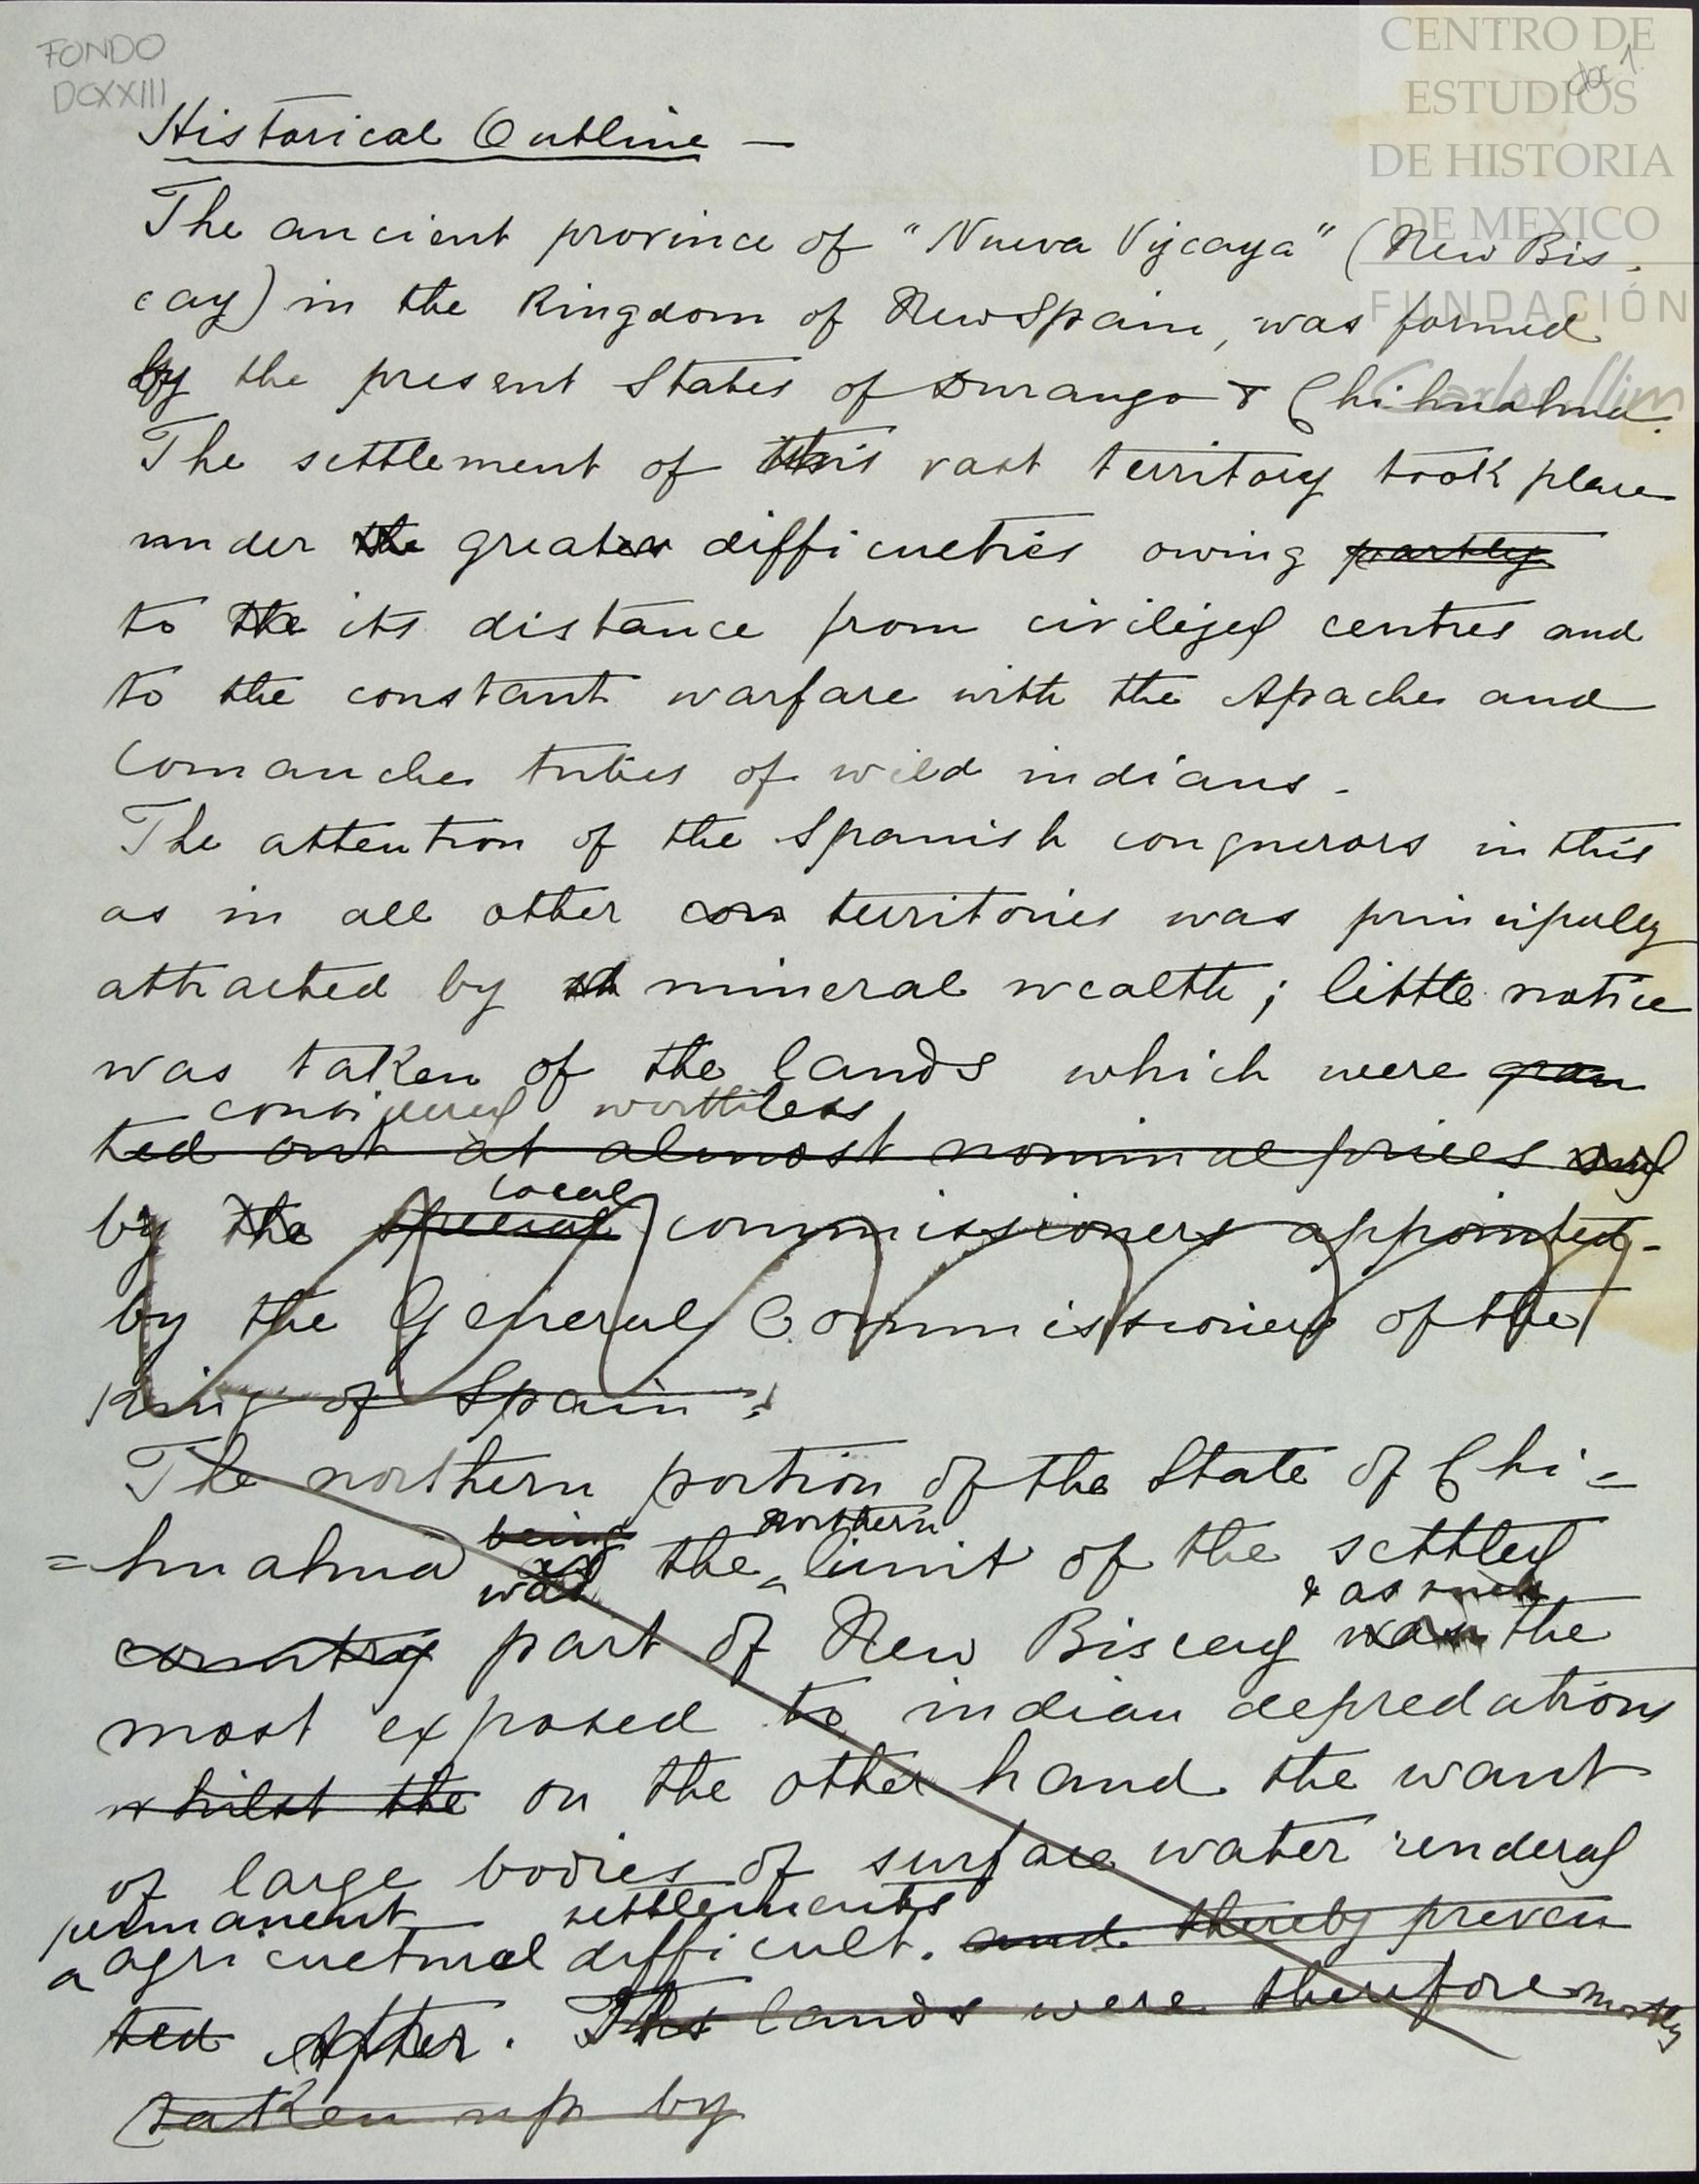 FONDO
DCXXIII
doc 1.
CENTRO DE
ESTUDIOS
DE HISTORIA
DE MEXICO
FUNDACIÓN
Carlos Slim
Historical Outline —
The ancient province of "Nueva Vizcaya" (New Bis-
cay) in the Kingdom of New Spain, was formed
by the present States of Durango & Chihuahua.
The settlement of this vast territory took place
under the great difficulties owing partly
to the its distance from civilized centres and
to the constant warfare with the Apache and
Comanche tribes of wild indians.
The attention of the Spanish conquerors in this
as in all other con territories was principally
attracted by mineral wealth; little notice
was taken of the lands which were gran
considered worthless
ted out at almost nominal prices and
local
by the special commissioners appointed
by the General Commissioners of the
King of Spain.
The northern portion of the State of Chi=
being northern
=huahua was the limit of the settled
& as such
country part of New Biscay was the
most exposed to indian depredations
whilst the on the other hand the want
of large bodies of surface water rendered
permanent settlements
agricultural difficult. and thereby preven
ted After. The lands were therefore mostly
taken up by